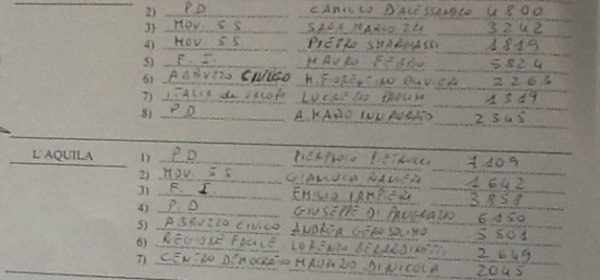 2) PD CAMILLO D'ALESSANDRO 4800
3) MOV. 5S SARA MARCOZZI 3242
4) MOV 5S PIETRO SMARGIASSI 1819
5) F. I. MAURO FEBBO 5824
6) ABRUZZO CIVICO M. FIORENTINO OLIVIERI 2263
7) ITALIA dei VALORI LUCREZIO PAOLINI 1319
8) PD 2545
L'AQUILA 1) PD PIERPAOLO PIETRUCCI 7109
2) MOV. 5S GIANLUCA RANIERI 1642
3) F. I EMILIO IAMPIERI 3858
4) P.D GIUSEPPE DI PANGRAZIO 6150
5) ABRUZZO CIVICO ANDREA GEROSOLIMO 5501
6) REGIONE FACILE LORENZO BERARDINETTI 2649
7) CENTRO DEMOCRATICO MAURIZIO DI NICOLA 2045